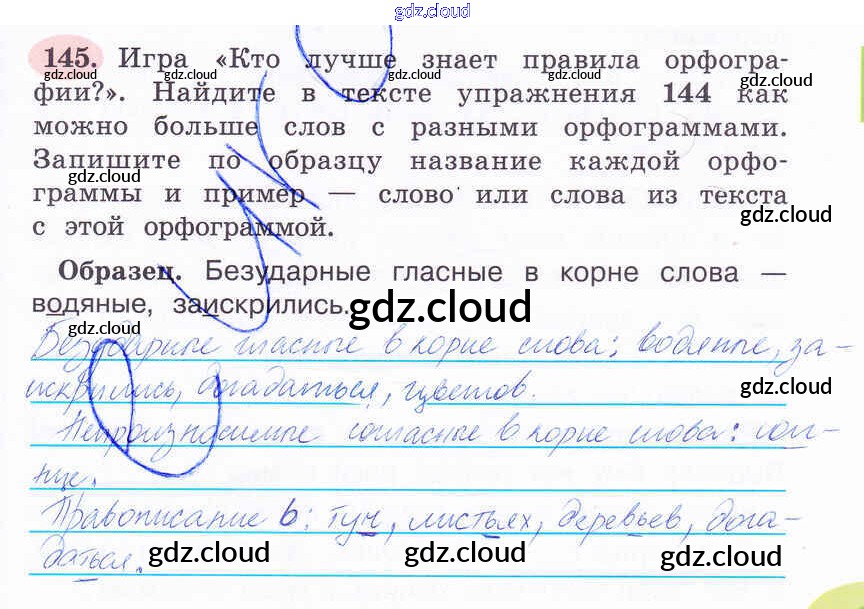 gdz.cloud
145. Игра «Кто лучше знает правила орфогра-
gdz.cloud gdz.cloud gdz.cloud gdz.cloud
фии?». Найдите в тексте упражнения 144 как
можно больше слов с разными орфограммами.
Запишите по образцу название каждой орфо-
граммы и пример — слово или слова из текста
с этой орфограммой.
gdz.cloud
Образец. Безударные гласные в корне слова —
водяные, заискрились.
gdz.cloud
gdz.cloud
Безударные гласные в корне слова: водяные, за-
искрились, догадаться, цветов.
gdz.cloud
Непроизносимые согласные в корне слова: сол-
нце.
Правописание ь: туч, листьях, деревьев, дога-
даться.
gdz.cloud gdz.cloud gdz.cloud